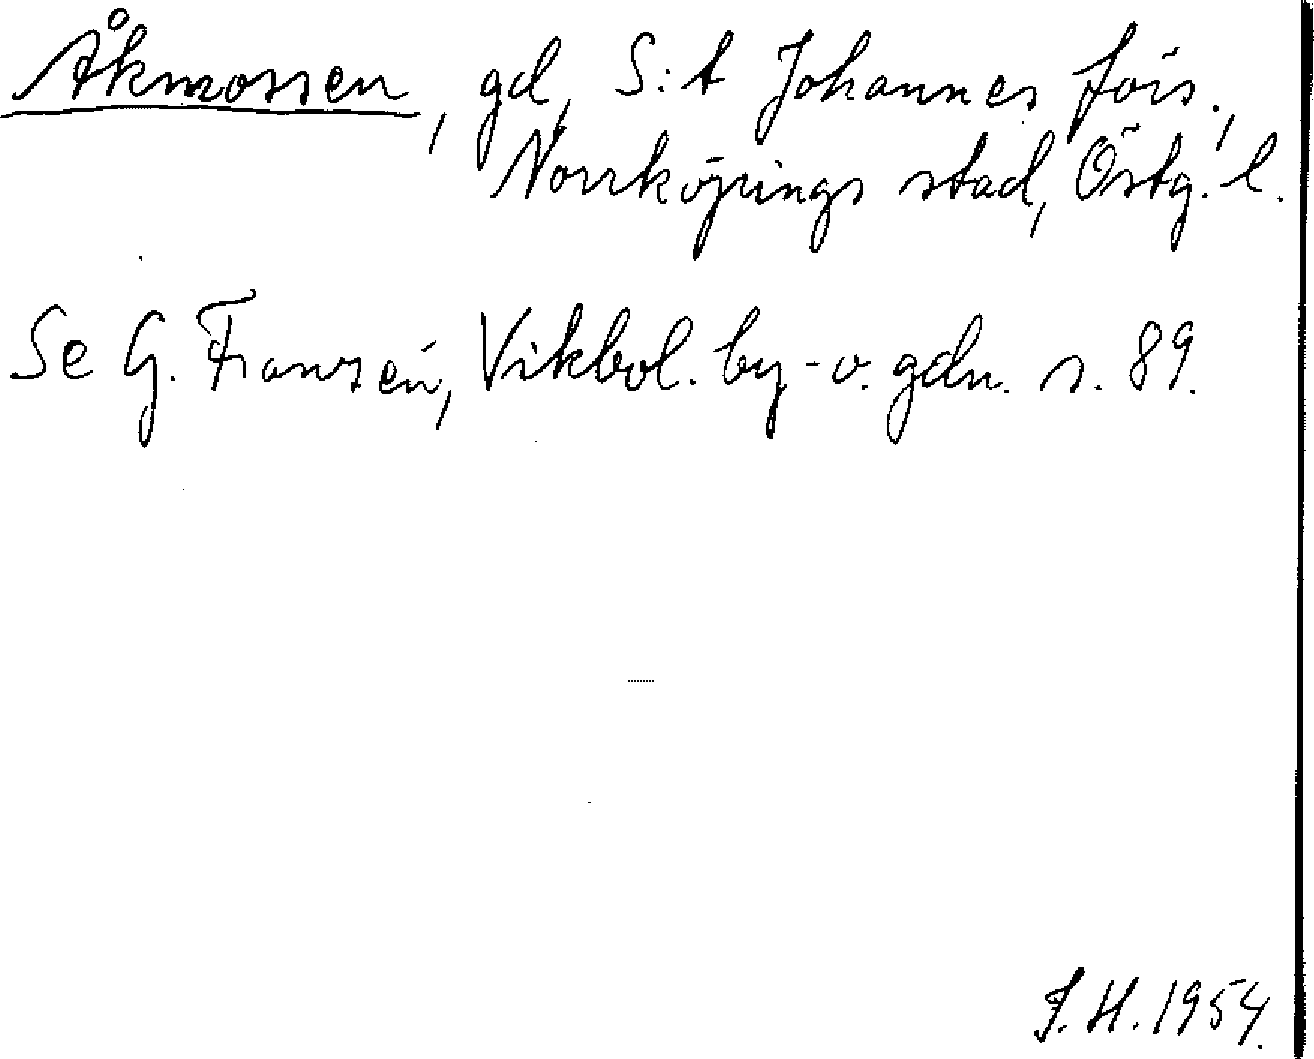 Åkmossen, gd, S:t Johannes förs.,
Norrköpings stad, Östg. l.
Se G. Franzén, Vikbol. by- o. gdn. s. 89.
J. H. 1954.